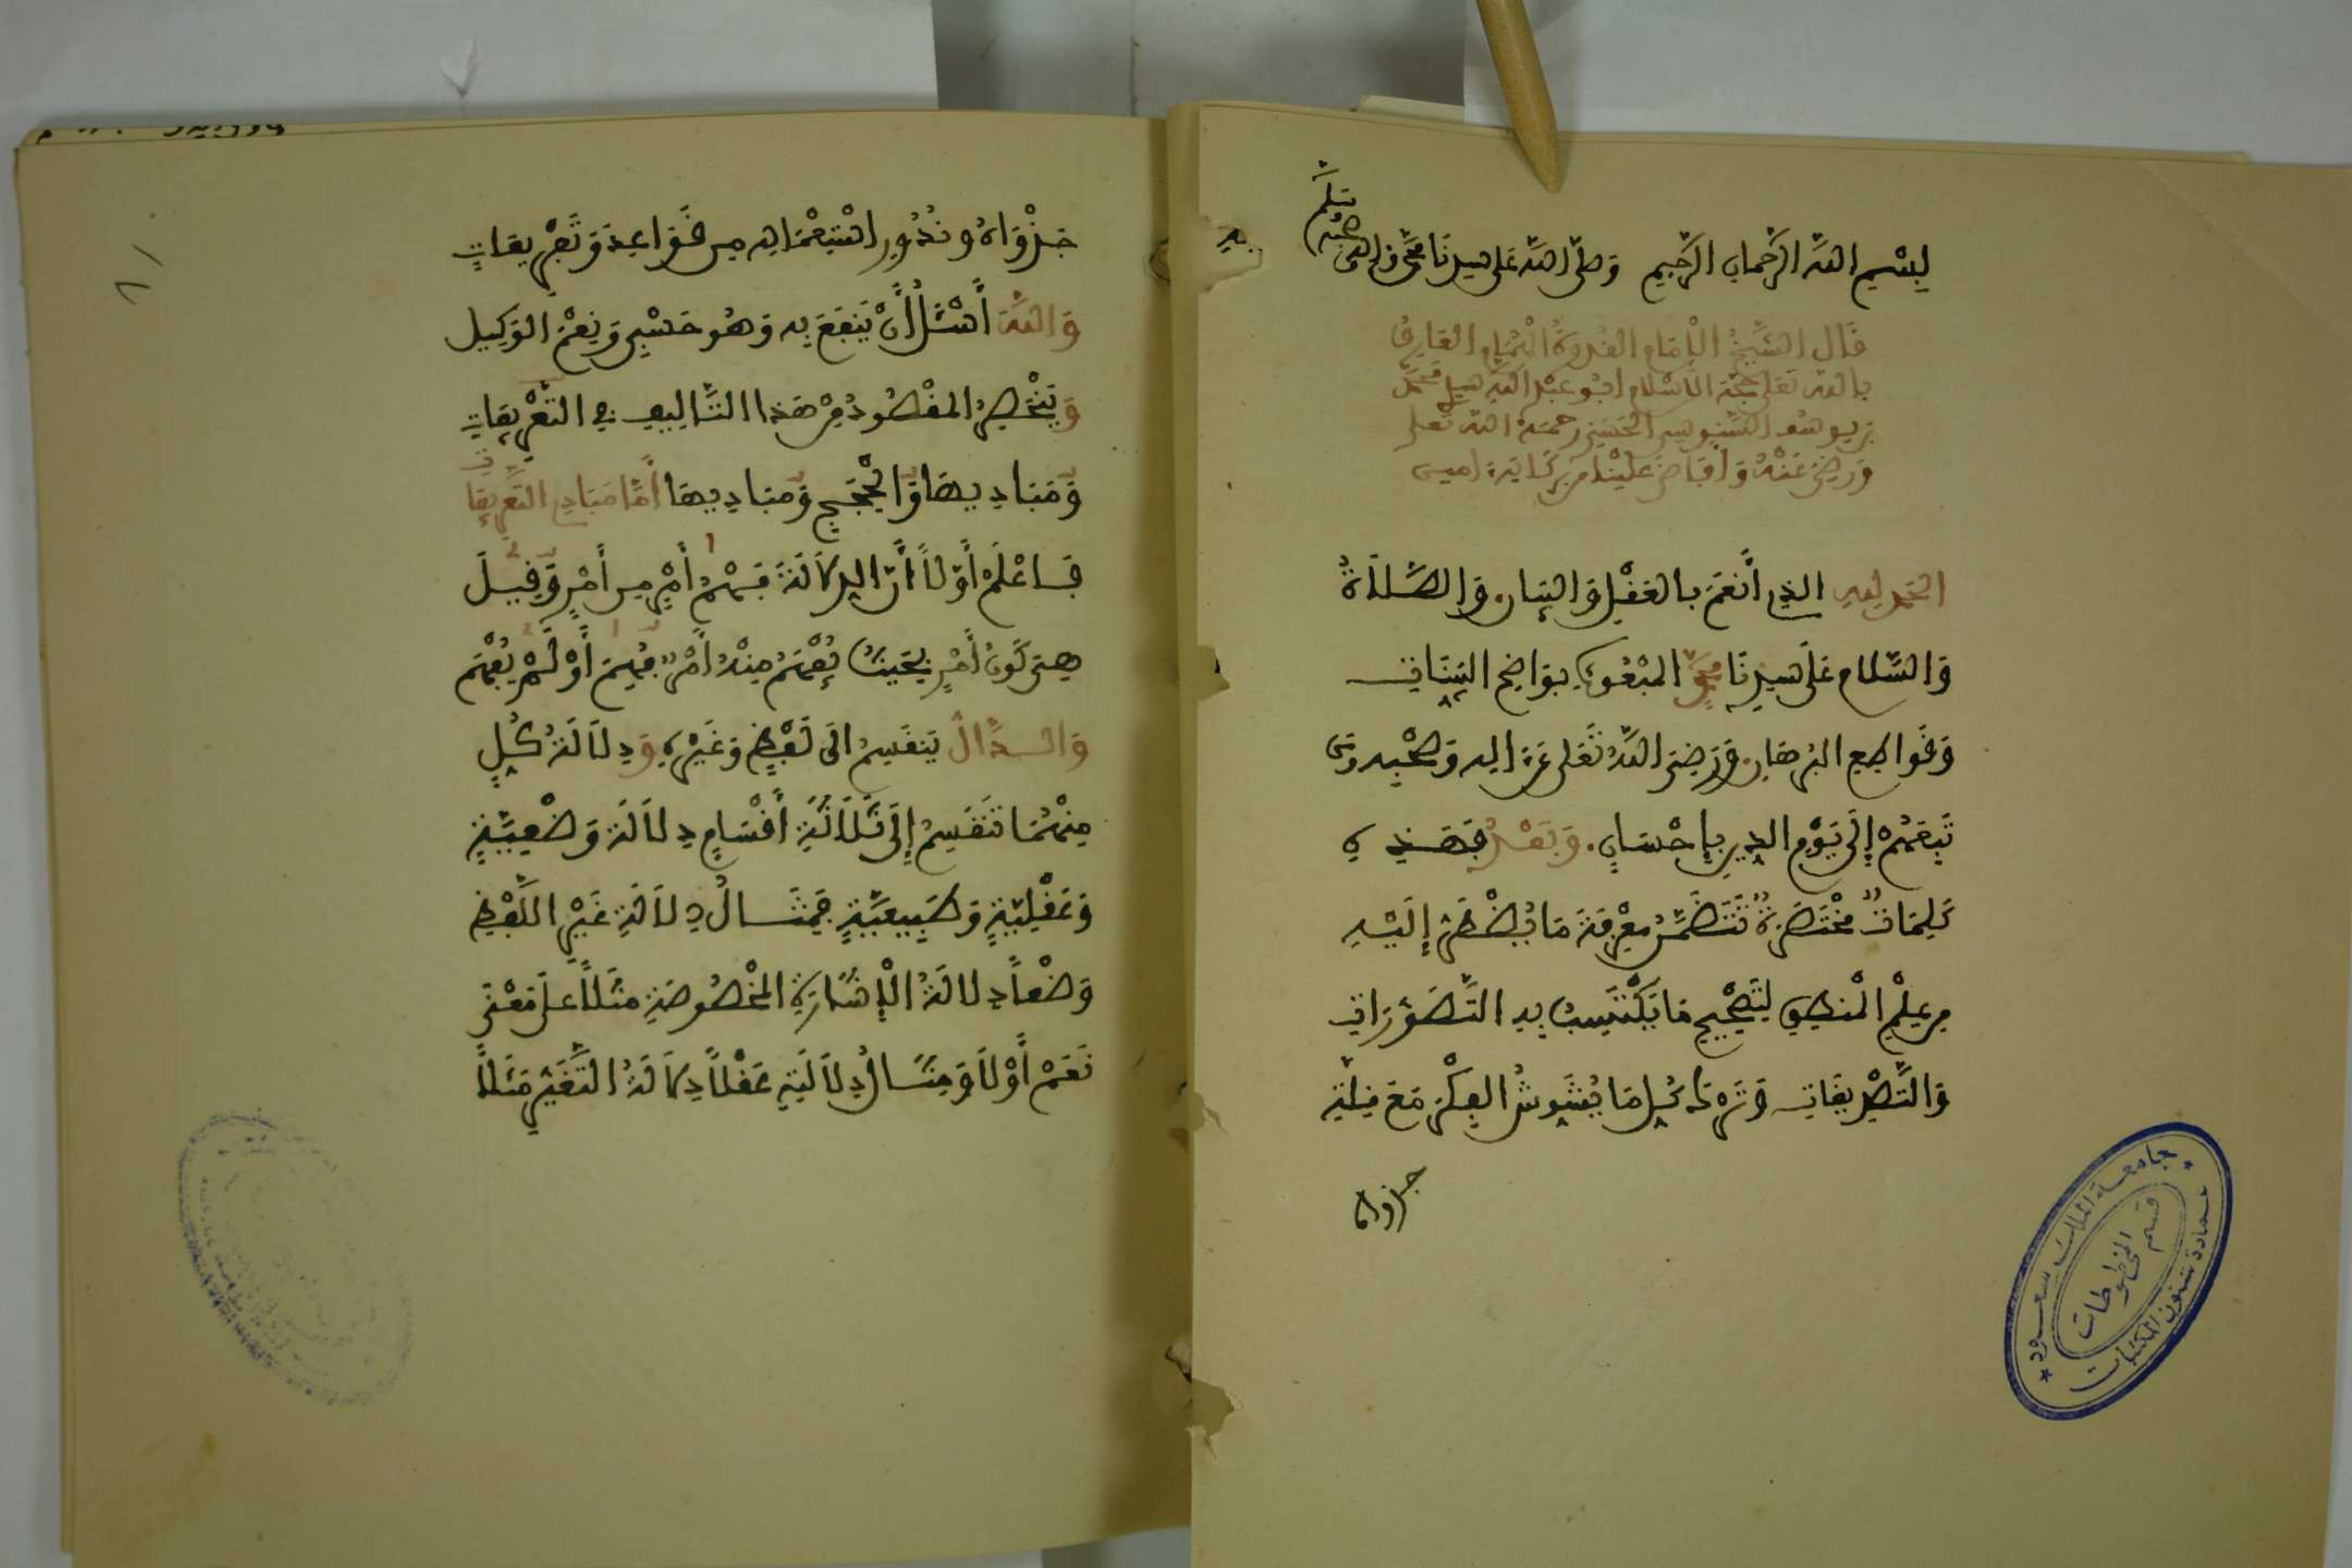 بِسْمِ اللَّهِ الرَّحْمَانِ الرَّحِيمِ وَصَلَّى اللَّهُ عَلَى سَيِّدِنَا مُحَمَّدٍ وَالِهِ وَصَحْبِهِ وَسَلَّمَ
قَالَ الشَّيْخُ الْإِمَامُ الْقُدْوَةُ الْهُمَامُ الْعَارِفُ
بِاللَّهِ تَعَلَى حُجَّةُ الْأِسْلَامِ ابُو عَبْدِ اللَّهِ سَيِّدِي مُحَمَّدُ
بْنُ يُوسُفَ السَّنُوسِي الْحَسَنِي رَحِمَهُ اللَّهُ تَعَلَى
وَرَضِيَ عَنْهُ وَأَفَاضَ عَلَيْنَا مِنْ بَرَكَاتِهِ ءامين
الحَمْدُ لِلهِ الذِي أَنْعَمَ بِالعَقْلِ وَالبَيَانِ. وَالصَّلَاةُ
وَالسَّلَامُ عَلَى سَيِّدِنَا مُحَمَّدٍ المَبْعُوثِ بِوَاضِحِ البَيِّنَاتِ
وَقَوَاطِعِ البُرْهَانِ. وَرَضِيَ اللَّهُ تَعَلَى عَنَ الِهِ وَصَحْبِهِ وَمَن
تَبِعَهُمْ إِلَى يَوْمِ الدِّينِ بِإِحْسَانٍ. وَبَعْدُ فَهَذِهِ
كَلِمَاتٌ مُخْتَصَرَةٌ تَتَضَمَّنُ مَعْرِفَةَ مَا يُضْطَرُّ إِلَيْهِ
مِنْ عِلْمِ الْمَنطِقِ لِتَصْحِيحِ مَا يُكْتَسَبُ بِهِ التَّصَوُّرَاتُ
وَالتَّصْدِيقَاتُ وَتَرْكِ كُلِّ مَا يُشَوِّشُ الفِكْرَ مَعَ قِلَّةِ
جَدْوَاهُ
جَدْوَاهُ وَنُدُورِ اسْتِعْمَالِهِ مِن قَوَاعِدَ وَتَعْرِيفَاتٍ
وَاللَّهَ أَسْئَلُ أَنْ يَنفَعَ بِهِ وَهُوَ حَسْبِي وَنِعْمَ الوَكِيل
وَيَنْحَصِرُ المَقْصُودُ مِنْ هَذَا التَّالِيفِ فِي التَّعْرِيفَاتِ
وَمَبَادِيهَا وَالْحُجَجِ وَمَبَادِيهَا أَمَّا مَبَادِي التَّعْرِيفَاتِ
فَاعْلَمْ أَوَّلًا أَنَّ الدِّلَالَةَ فَهْمُ أَمْرٍ مِن أَمْرٍ وَقِيلَ
هِيَ كَوْنُ أَمْرٍ بِحَيْثُ يُفْهَمُ مِنْهُ أَمْرٌ فُهِمَ أَوْ لَمْ يُفْهَم
وَالدَّالُّ يَنقَسِمُ الَى لَفْظٍ وَغَيْرِهِ وَدِلَالَةُ كُلٍّ
مِنْهُمَا تَنقَسِمُ إِلَى ثَلَاثَةِ أَقْسَامٍ دِلَالَةٍ وَضْعِيَّةٍ
وَعَقْلِيَّةٍ وَطَبِيعِيَّةٍ فَمِثَالُ دِلَالَةِ غَيْرِ اللَّفْظِ
وَضْعًا دِلَالَةُ الْإِشَارَةِ المَخْصُوصَةِ مَثَلًا عَلَى مَعْنَى
نَعَمْ أَوْ لَا وَمِثَالُ دِلَالَتِهِ عَقْلًا دِلَالَةُ التَّغَيُّرِ مَثَلًا
جامعة الملك سعود
عمادة شئون المكتبات
قسم المخطوطات